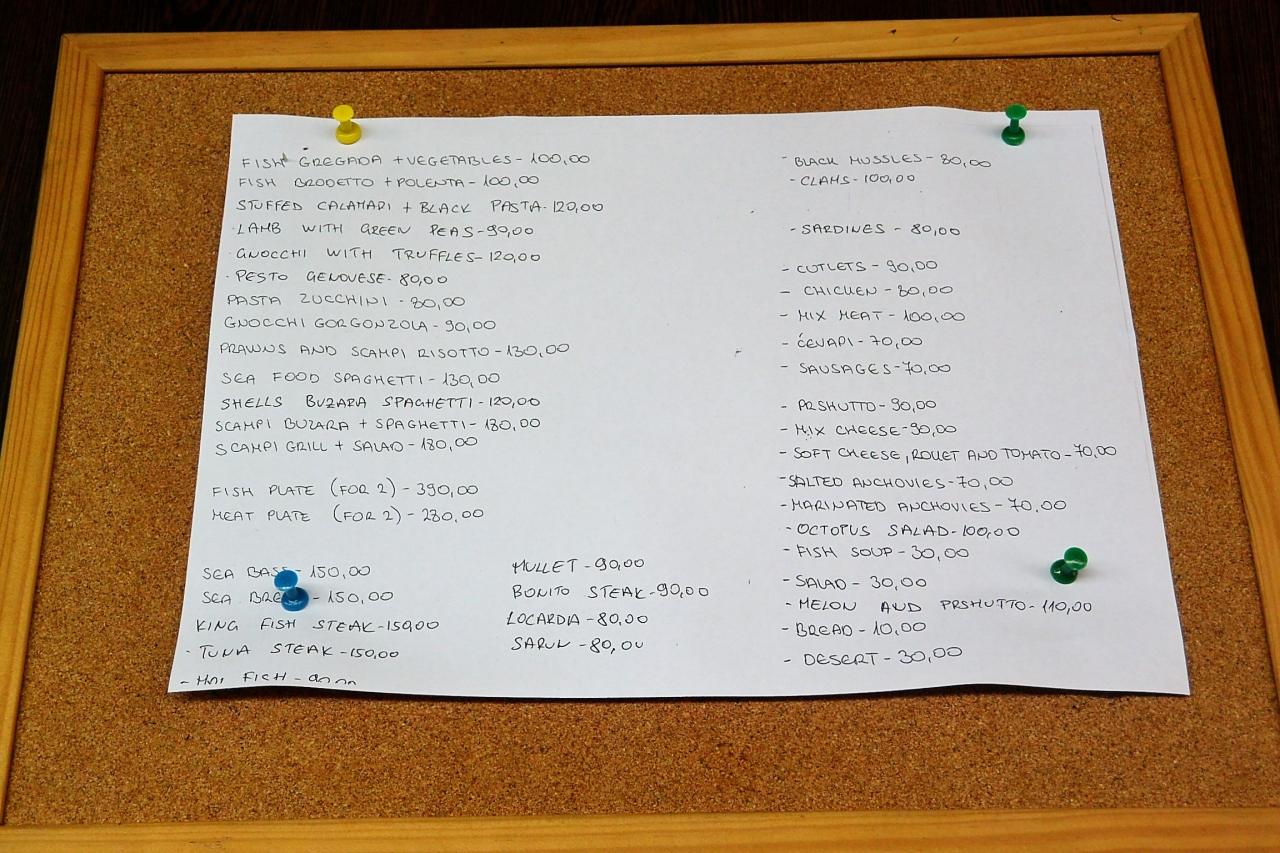 FISH GREGADA + VEGETABLES - 100,00
FISH BRODETTO + POLENTA - 100,00
STUFFED CALAMARI + BLACK PASTA - 120,00
LAMB WITH GREEN PEAS - 90,00
GNOCCHI WITH TRUFFLES - 120,00
PESTO GENOVESE - 80,00
PASTA ZUCCHINI - 80,00
GNOCCHI GORGONZOLA - 90,00
PRAWNS AND SCAMPI RISOTTO - 130,00
SEA FOOD SPAGHETTI - 130,00
SHELLS BUZARA SPAGHETTI - 120,00
SCAMPI BUZARA + SPAGHETTI - 180,00
SCAMPI GRILL + SALAD - 180,00
FISH PLATE (FOR 2) - 390,00
MEAT PLATE (FOR 2) - 280,00
SEA BASS - 150,00
SEA - 150,00
KING FISH STEAK - 150,00
- TUNA STEAK - 150,00
FISH -
MULLET - 90,00
BONITO STEAK - 90,00
LOCARDIA - 80,00
- 80,00
- BLACK MUSSLES - 80,00
- CLAMS - 100,00
- SARDINES - 80,00
- CUTLETS - 90,00
- CHICKEN - 80,00
- MIX MEAT - 100,00
- ĆEVAPI - 70,00
- SAUSAGES - 70,00
- PRSHUTTO - 90,00
- MIX CHEESE - 90,00
- SOFT CHEESE, ROUET AND TOMATO - 70,00
- SALTED ANCHOVIES - 70,00
- MARINATED ANCHOVIES - 70,00
- OCTOPUS SALAD - 100,00
- FISH SOUP - 30,00
- SALAD - 30,00
- MELON AND PRSHUTTO - 110,00
- BREAD - 10,00
- DESERT - 30,00